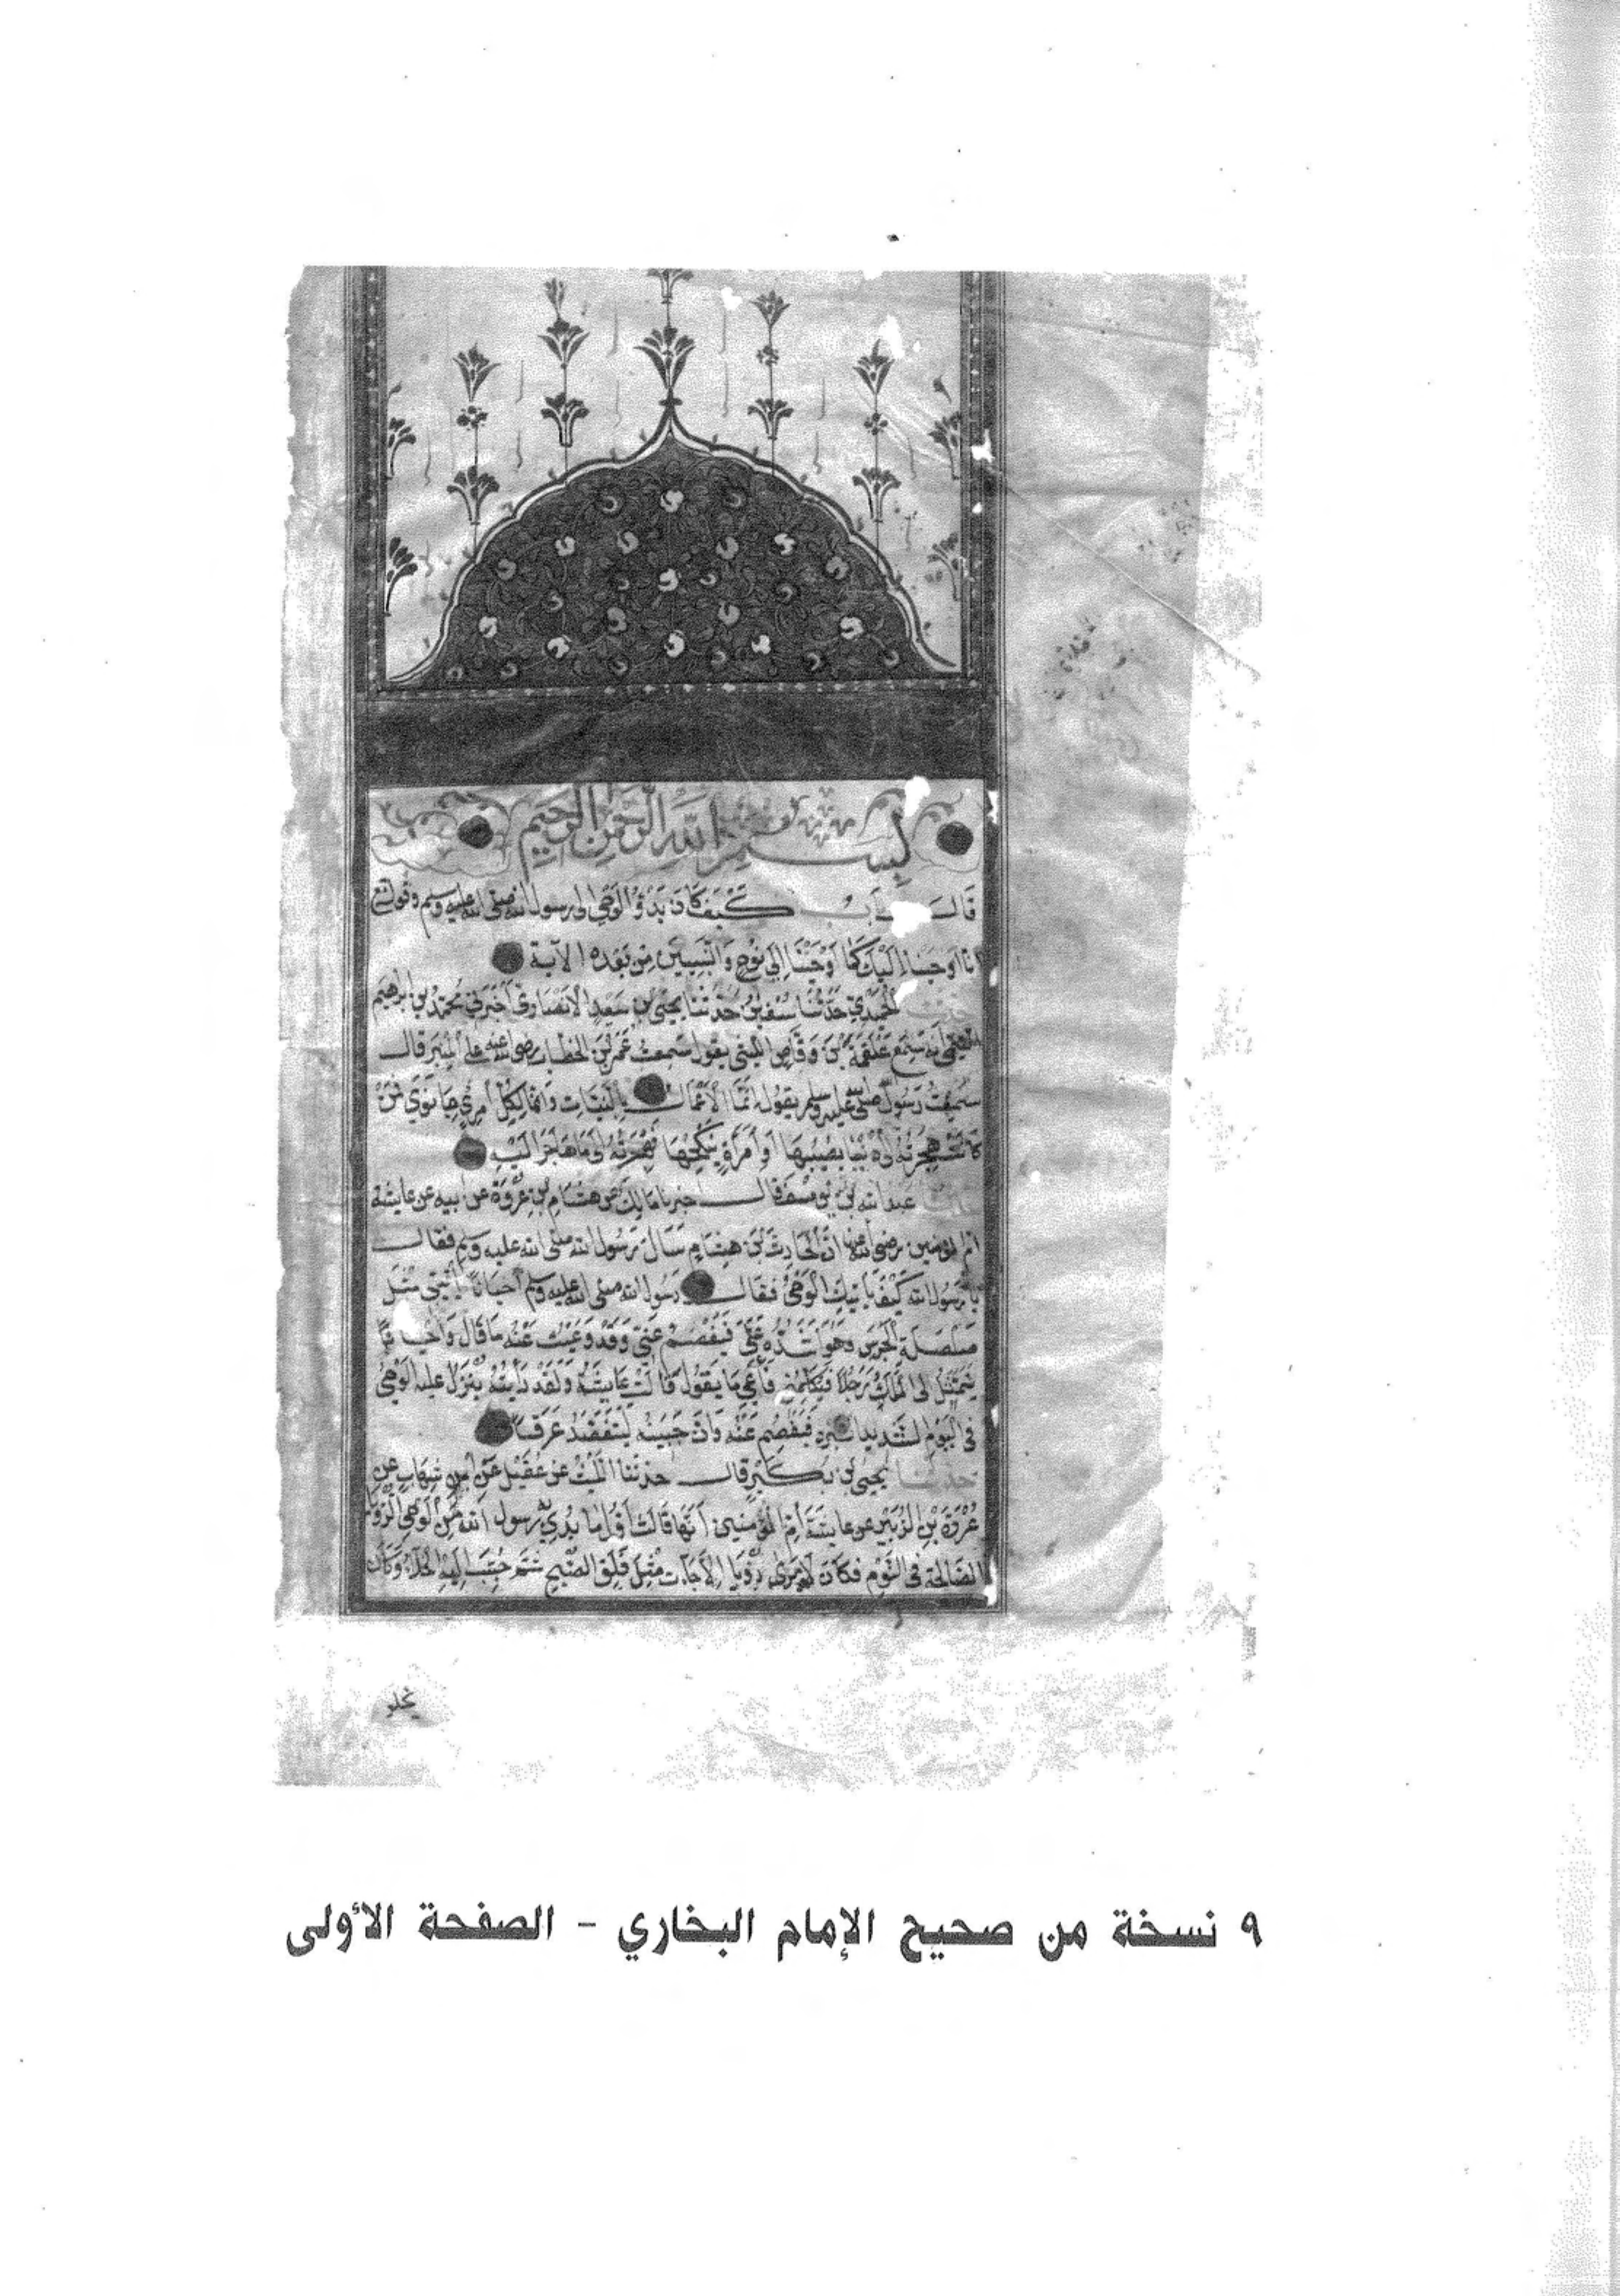 بسم الله الرحمن الرحيم
قال باب كيف كان بدؤ الوحى الى رسول الله صلى الله عليه وسلم وقوله تع
انا اوحينا اليك كَمَا اَوْحَيْنَا اِلَى نُوحٍ وَالنَّبِيينَ مِنْ بَعْدِه الآية
الحُمَيْدِي حَدَّثَنَا سُفْين حَدَّثَنَا يحيى بن سَعِيدٍ الانْصَارى اَخْبَرَنى مُحَمَّدُ بن ابرهيم
التيمى اَنه سَمِعَ عَلقَمَةَ بْنَ وَقَّاصٍ الليثى يقول سَمِعتُ عُمَرَ بْنَ الخطاب رضى الله عنه على المِنْبَر قال
سَمِعْتُ رَسُولَ الله صلى الله عليه وسلم يقول اِنَّمَا الاَعْمَال بالنيَّات وَانَّمَا لِكُلِّ امرئٍ مَا نَوَى فَمَنْ
كَانَتْ هِجرَتُهُ الى دُنْيَا يُصِيبُهَا اَو اِمْرَأَةٍ يَنكِحُهَا فَهِجْرَتُهُ الى مَا هَاجَرَ اِلَيْهِ
عبد الله بن يوسف قال اخبرنا مَالِك عن هشام بن عُرْوَةَ عن ابيه عن عايشة
ام المؤمنين رضى الله عنها انَّ الحَارِثَ بْنَ هِشَامٍ سَأَلَ رَسُولَ الله صلى الله عليه وسلم فقال
يا رَسُولَ الله كَيْفَ يَأتِيكَ الْوَحْىُ فقال رَسُول الله صلى الله عليه وسلم اَحيَانًا يَأْتِينى مِثْلَ
صَلْصَلَةِ الْجَرَسِ وَهُوَ اَشَدُّهُ عَلَىَّ فَيُفْصَمُ عَنِّى وَقَدْ وَعَيْتُ عَنْهُ مَا قَالَ وَاَحْيَانًا
يَتَمَثَّلُ لى المَلَكُ رَجُلاً فَيُكَلِّمُنى فَأَعِى مَا يَقُولُ قَالَتْ عَايِشَةُ وَلَقَدْ رَاَيْتُهُ يَنْزِلُ عليه الْوَحْىُ
فى اليَوْمِ الشَّدِيد البَرْدِ فَيُفْصِمُ عَنْهُ وَانَّ جَبِينَهُ لَيَتَفَصَّدُ عَرَقًا
حدثنا يَحْيَى بن بُكَيْرٍ قال حدثنا اللَّيْثُ عن عُقَيْلٍ عَنْ ابن شِهَابٍ عن
عُرْوَةَ بْنِ الزُّبَيْرِ عن عايشَةَ اُمِّ المُؤْمِنِينَ اَنَّهَا قَالَتْ اَوَّلُ مَا بُدِئَ به رسول الله مِنَ الْوَحْىِ الرُّؤيَا
الصَّالِحَة فى النَّوْمِ فكان لا يَرَى رُؤْيَا اِلاَّ جَاءت مِثْلَ فَلَقِ الصُّبْحِ ثم حُبِّبَ اِلَيْهِ الْخَلاءُ وَكَانَ
يخلو
٩ نسخة من صحيح الإمام البخاري - الصفحة الأولى